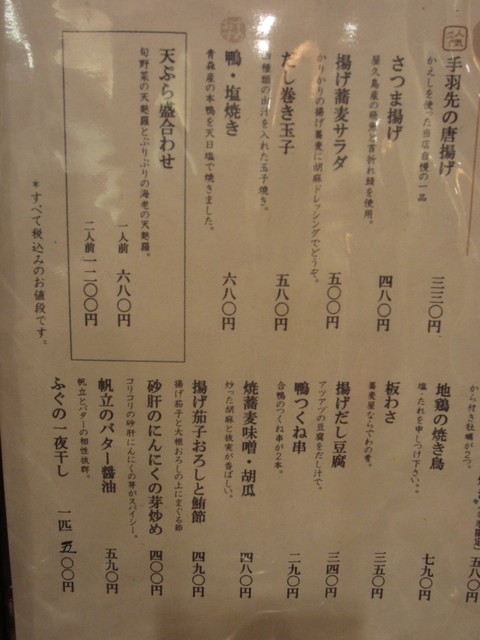 人気
手羽先の唐揚げ
かえしを使った当店自慢の一品
三三〇円
さつま揚げ
屋久島産の飛魚と首折れ鯖を使用。
四八〇円
揚げ蕎麦サラダ
かりかりの揚げ蕎麦に胡麻ドレッシングでどうぞ。
五〇〇円
だし巻き玉子
種類の出汁を入れた玉子焼き。
五八〇円
鴨・塩焼き
青森産の本鴨を天日塩で焼きました。
六八〇円
天ぷら盛合わせ
旬野菜の天麩羅とぷりぷりの海老の天麩羅。
一人前 六八〇円
二人前 一二〇〇円
*すべて税込みのお値段です。
から付き牡蠣が2つ。
五八〇
地鶏の焼き鳥
塩・たれを申しつけ下さい。
七九〇円
板わさ
蕎麦屋ならでわの肴。
三五〇円
揚げだし豆腐
アツアツの豆腐をだし汁で。
三四〇円
鴨つくね串
合鴨のつくね串が2本。
二九〇円
焼蕎麦味噌・胡瓜
炒った胡麻と抜実が香ばしい。
四八〇円
揚げ茄子おろしと鮪節
揚げ茄子と大根おろしの上にまぐろ節
四九〇円
砂肝のにんにくの芽炒め
コリコリの砂肝にんにくの芽がスパイシー。
四〇〇円
帆立のバター醤油
帆立とバターの相性抜群。
五九〇円
ふぐの一夜干し
一匹 五〇〇円